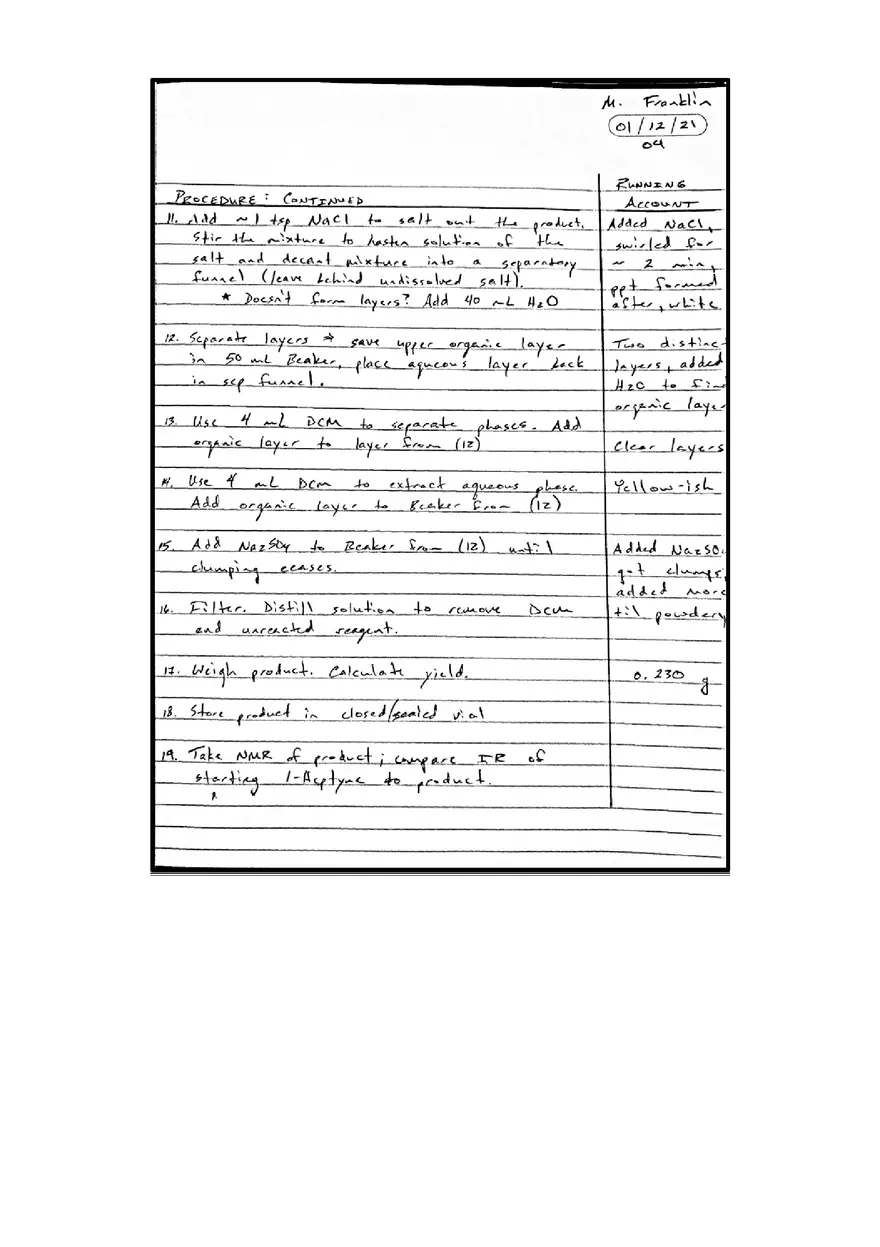 M. Franklin
01/12/21
04
RUNNING
PROCEDURE: CONTINUED
ACCOUNT
11. Add ~1 tsp NaCl to salt out the product.
Added NaCl,
Stir the mixture to hasten solution of the
swirled for
salt and decant mixture into a separatory
~ 2 min,
funnel (leave behind undissolved salt).
ppt formed
* Doesn't form layers? Add 40 mL H2O
after, white
12. Separate layers → save upper organic layer
Two distinc
in 50 mL Beaker, place aqueous layer back
layers, added
in sep funnel.
H2O to fin
organic laye
13. Use 4 mL DCM to separate phases. Add
organic layer to layer from (12)
Clear layers
14. Use 4 mL DCM to extract aqueous phase.
Yellow-ish
Add organic layer to Beaker from (12)
15. Add Na2SO4 to Beaker from (12) until
Added Na2SO
clumping ceases.
got clumps,
added more
16. Filter. Distill solution to remove DCM
til powdery
and unreacted reagent.
17. Weigh product. Calculate yield.
0.230 g
18. Store product in closed/sealed vial
19. Take NMR of product; compare IR of
starting 1-Heptyne to product.